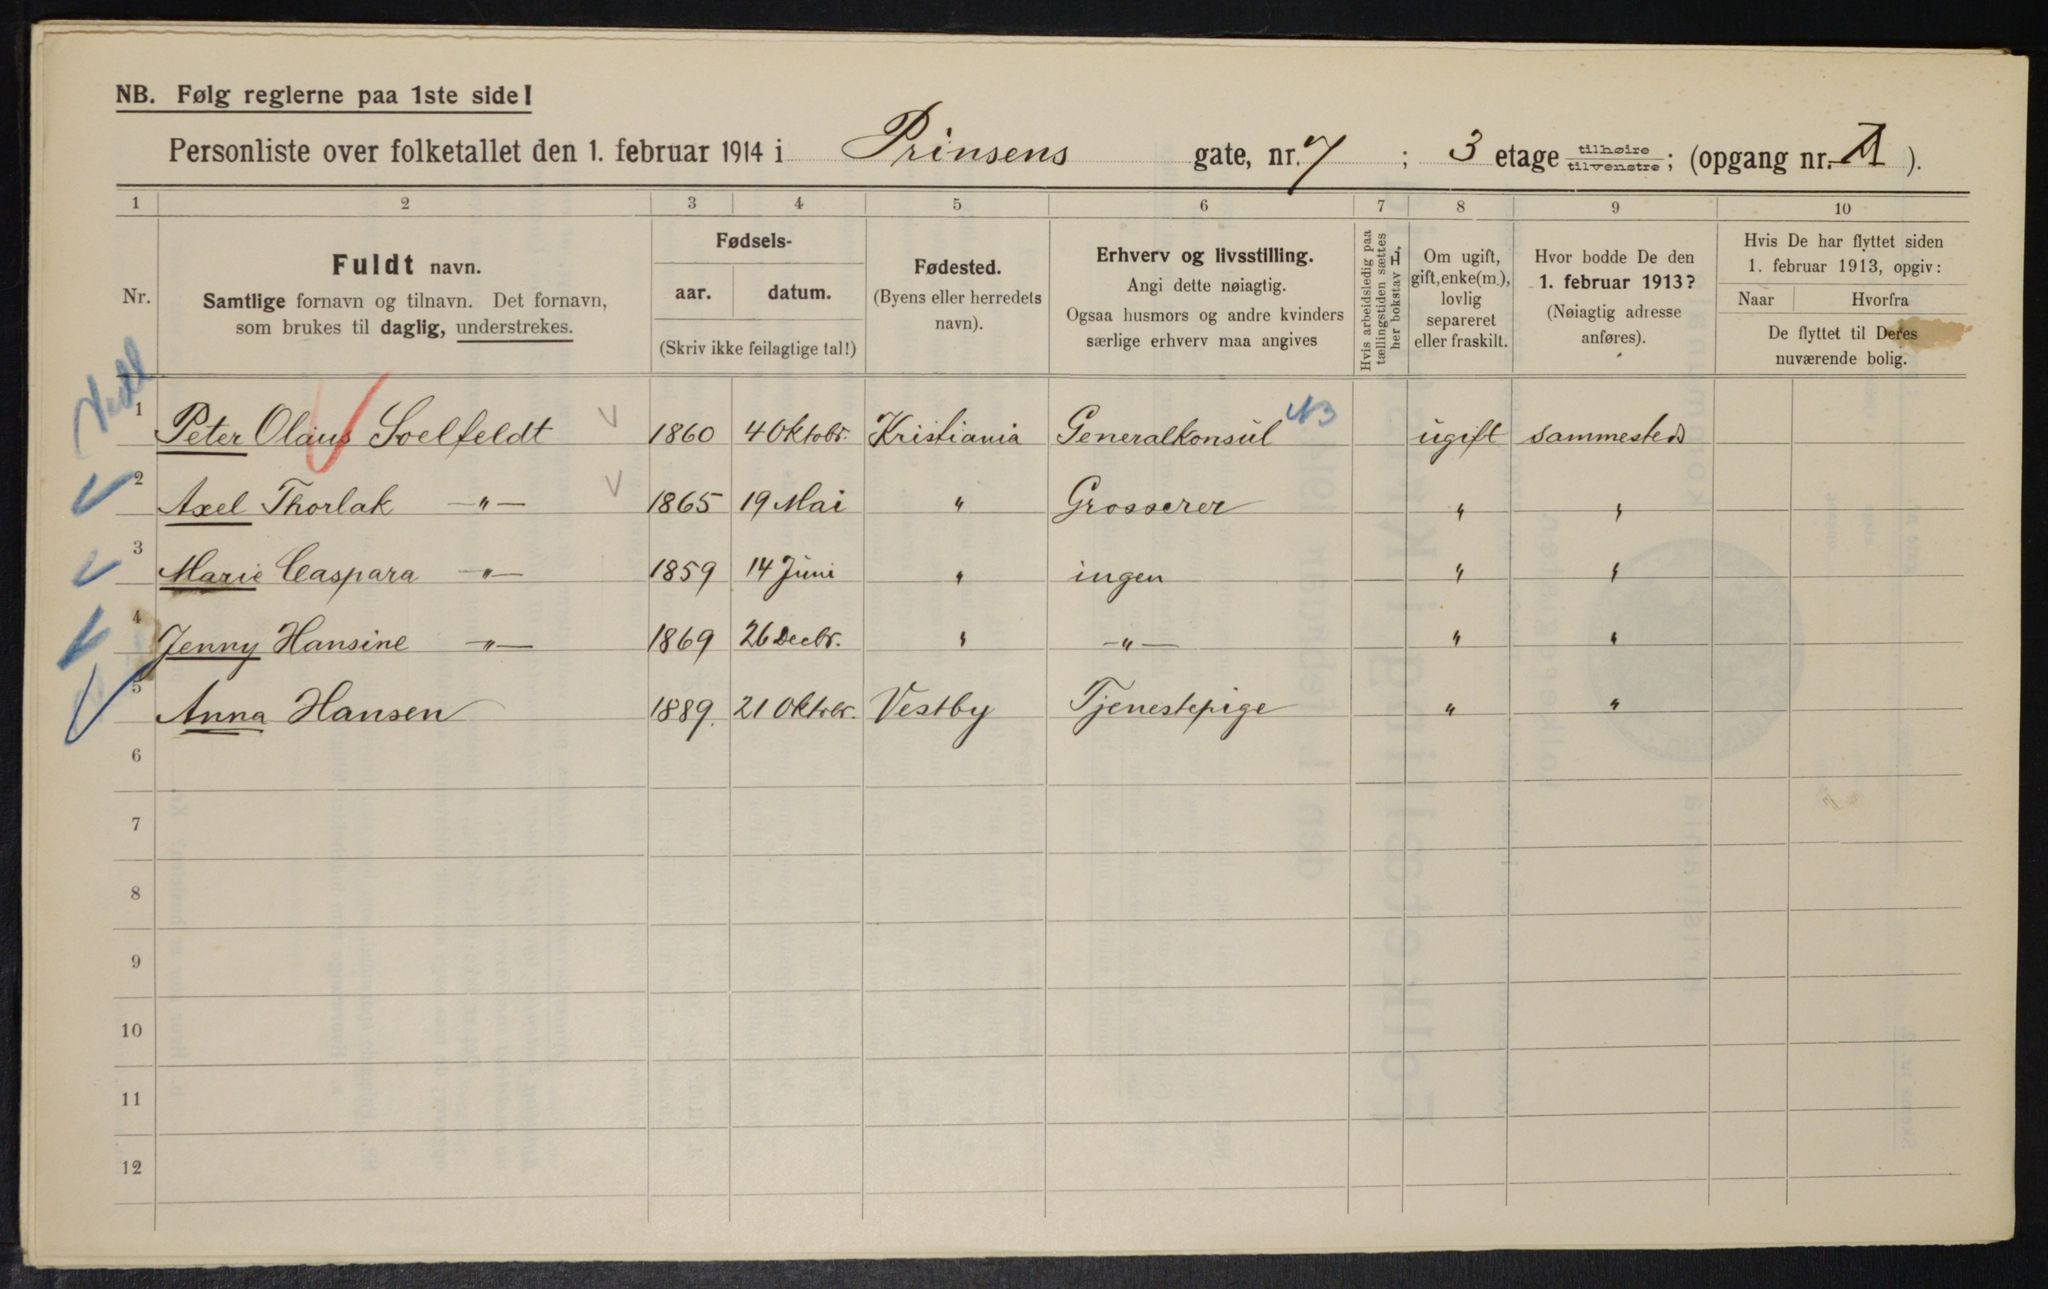 NB. Følg reglerne paa 1ste side!
Personliste over folketallet den 1. februar 1914 i Prinsens gate, nr. 7 ; 3 etage tilhøire tilvenstre ; (opgang nr. ).
1 2 3 4 5 6 7 8 9 10
Nr.
Fuldt navn.
Samtlige fornavn og tilnavn. Det fornavn,
som brukes til daglig, understrekes.
Fødsels-
aar. datum.
(Skriv ikke feilagtige tal!)
Fødested.
(Byens eller herredets
navn).
Erhverv og livsstilling.
Angi dette nøiagtig.
Ogsaa husmors og andre kvinders
særlige erhverv maa angives
Hvis arbeidsledig paa
tællingstiden sættes
her bokstav L.
Om ugift,
gift, enke(m.),
lovlig
separeret
eller fraskilt.
Hvor bodde De den
1. februar 1913?
(Nøiagtig adresse
anføres).
Hvis De har flyttet siden
1. februar 1913, opgiv:
Naar Hvorfra
De flyttet til Deres
nuværende bolig.
1 Peter Olaus Soelfeldt 1860 4 Oktobr. Kristiania Generalkonsul ugift sammesteds
2 Axel Thorlak —"— 1865 19 Mai " Grosserer " "
3 Marie Caspara —"— 1859 14 Juni " ingen " "
4 Jenny Hansine —"— 1869 26 Decbr. " —"— " "
5 Anna Hansen 1889. 21 Oktobr. Vestby Tjenestepige " "
6
7
8
9
10
11
12